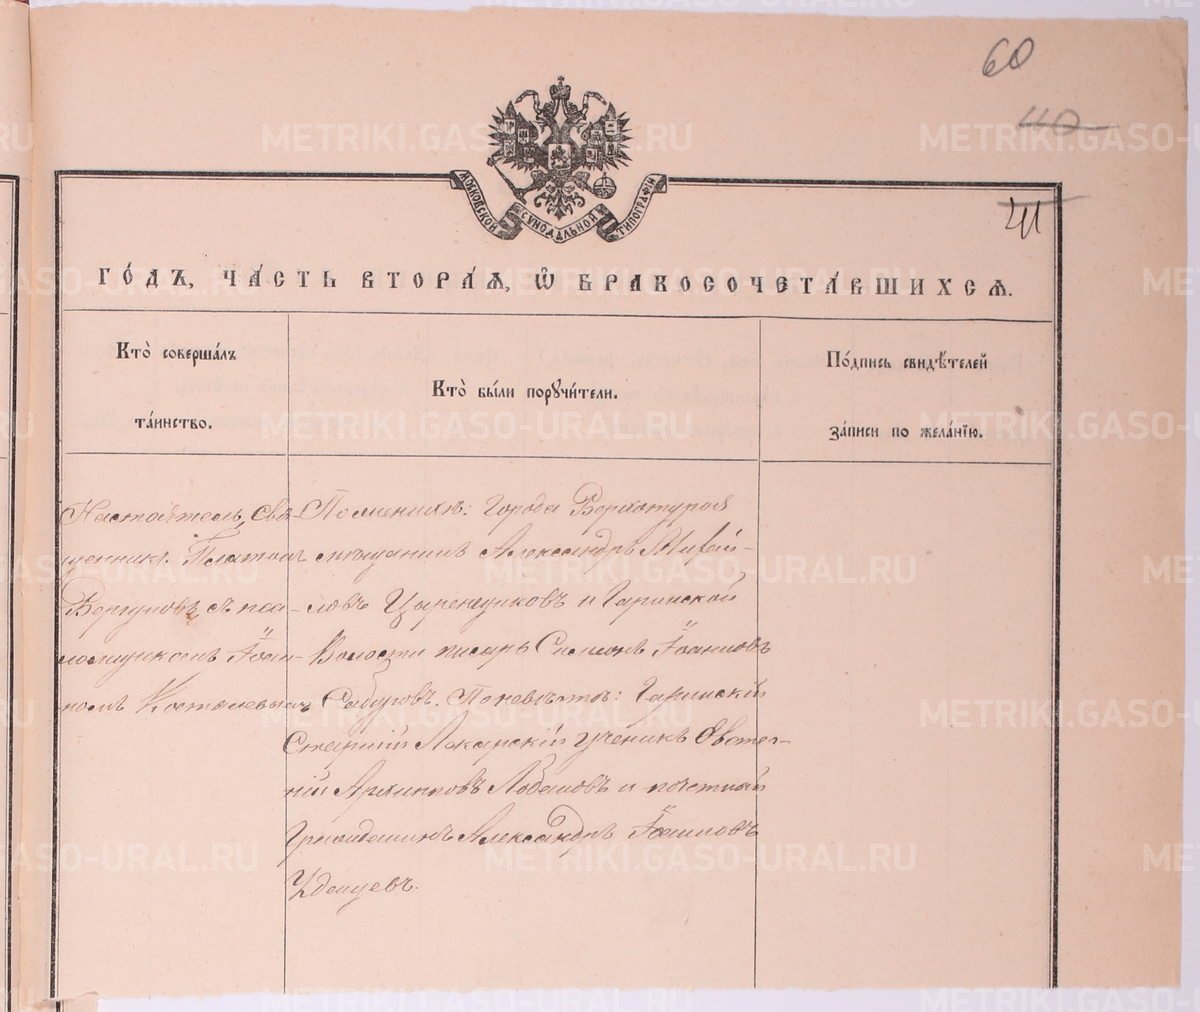 60
40
41
МОСКОВСКОЙ СѴНОДАЛЬНОЙ ТИПОГРАФІИ
ГО́ДЪ, ЧА́СТЬ ВТОРА́Ѧ, Ѽ БРАКОСОЧЕТА́ВШИХСѦ.
Кто̀ соверша́лъ
та́инство.
Кто̀ бы́ли порꙋчи́тели.
По́дпись свидѣ́телей
за́писи по жела́нїю.
Настоятель, Свя-
щенникъ Платонъ
съ пса-
ломщикомъ Іоан-
номъ
По женихѣ: Города Верхотурья
мѣщанинъ Александръ Михай-
ловъ Царенщиковъ и Гаринской
Волости писарь Симеонъ Іоанновъ
Сабуровъ. По невѣстѣ: Гаринскій
Старшій Лекарскій ученикъ Евге-
ній Архиповъ Лобановъ и почетный
Гражданинъ Александръ Іоанновъ
Удинцевъ.
METRIKI.GASO-URAL.RU